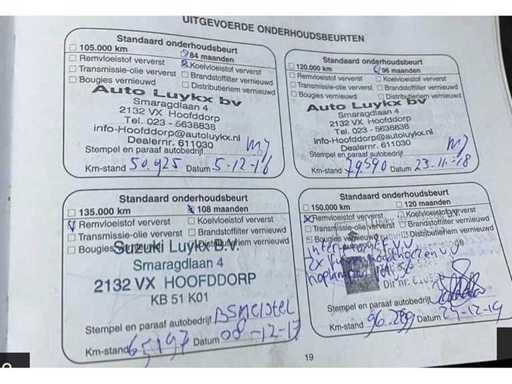 UITGEVOERDE ONDERHOUDSBEURTEN
Standaard onderhoudsbeurt
105.000 km 84 maanden
Remvloeistof ververst Koelvloeistof ververst
Transmissie-olie ververst Brandstoffilter vernieuwd
Bougies vernieuwd Distributieriem vernieuwd
Auto Luykx bv
Smaragdlaan 4
2132 VX Hoofddorp
Tel. 023 - 5638838
info-Hoofddorp@autoluykx.nl
Dealernr. 611030
Stempel en paraaf autobedrijf
Km-stand 50.925 Datum 5-12-16
Standaard onderhoudsbeurt
120.000 km 96 maanden
Remvloeistof ververst Koelvloeistof ververst
Transmissie-olie ververst Brandstoffilter vernieuwd
Bougies vernieuwd Distributieriem vernieuwd
Auto Luykx bv
Smaragdlaan 4
2132 VX Hoofddorp
Tel. 023 - 5638838
info-Hoofddorp@autoluykx.nl
Dealernr. 611030
Stempel en paraaf autobedrijf
Km-stand 79.590 Datum 23-11-18
Standaard onderhoudsbeurt
135.000 km 108 maanden
Remvloeistof ververst Koelvloeistof ververst
Transmissie-olie ververst Brandstoffilter vernieuwd
Bougies Distributieriem vernieuwd
Suzuki Luykx B.V.
Smaragdlaan 4
2132 VX HOOFDDORP
KB 51 K01
Stempel en paraaf autobedrijf
Km-stand Datum 08-12-17
Standaard onderhoudsbeurt
150.000 km 120 maanden
Remvloeistof ververst Koelvloeistof ververst
Transmissie-olie ververst Brandstoffilter vernieuwd
Bougies Distributieriem vernieuwd
Stempel en paraaf autobedrijf
Km-stand Datum
19